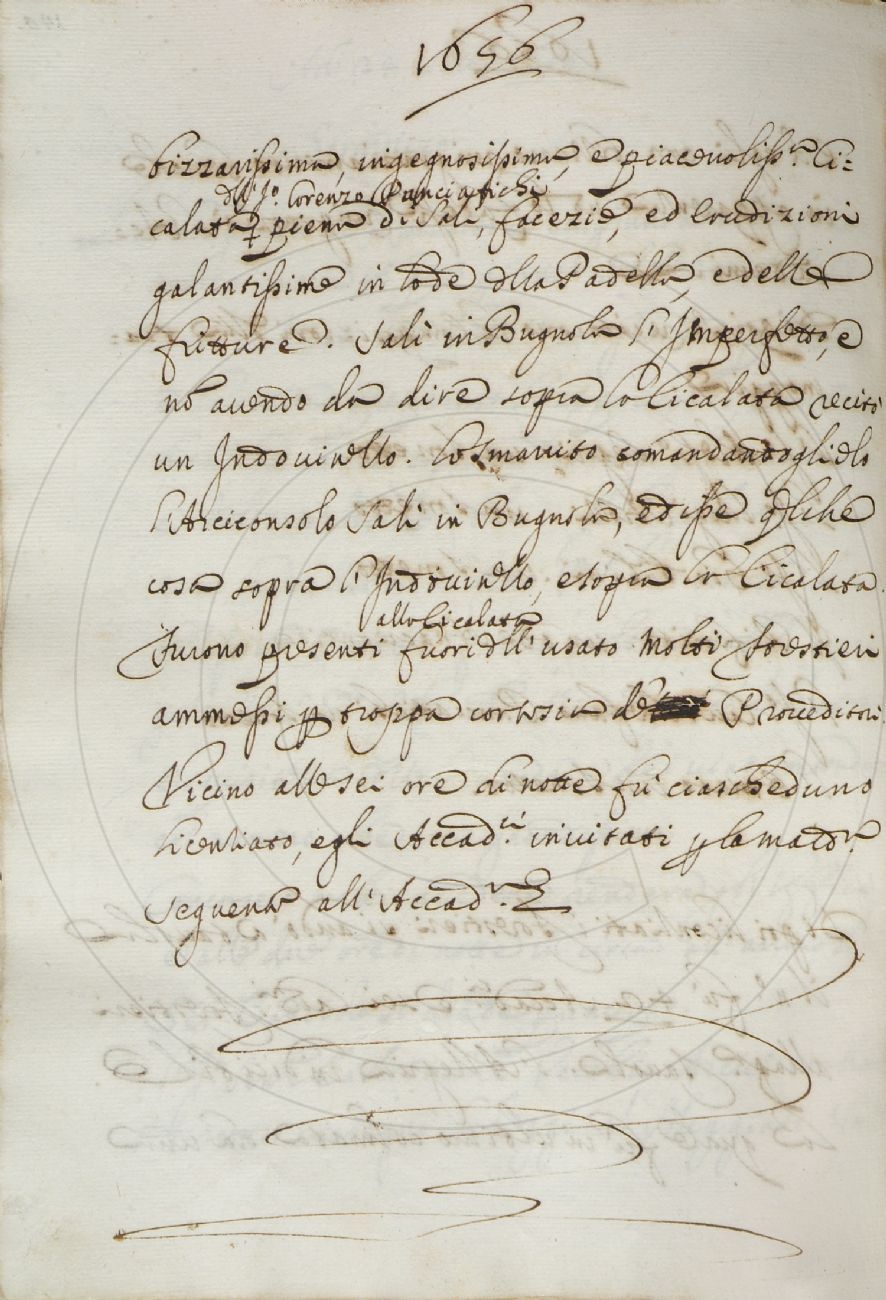 1656
bizzarissima, ingegnosissima, e piacevoliss.ª Ci=
dll' Jo. Lorenzo Panciatichi
calata piena di Sali, facezie, ed erudizioni
galantissime in lode dlla Padella, e delle
fritture. Salì in Bugnola l'Imperfetto, e
nō avendo da dire sopra la Cicalata recitò
un Indovinello. Lo Smarrito comandandoglielo
l'Arciconsolo Salì in Bugnola, e disse qlche
cosa sopra l'Indovinello, e sopra la Cicalata.
alla Cicalata
Furono presenti fuori dll' usato Molti forestieri
ammessi p troppa cortesia de' Proveditori.
Vicino alle sei ore di notte fu ciascheduno
licenziato, e gli Accad.ci invitati p la matt.ª
seguente all' Accad.ª